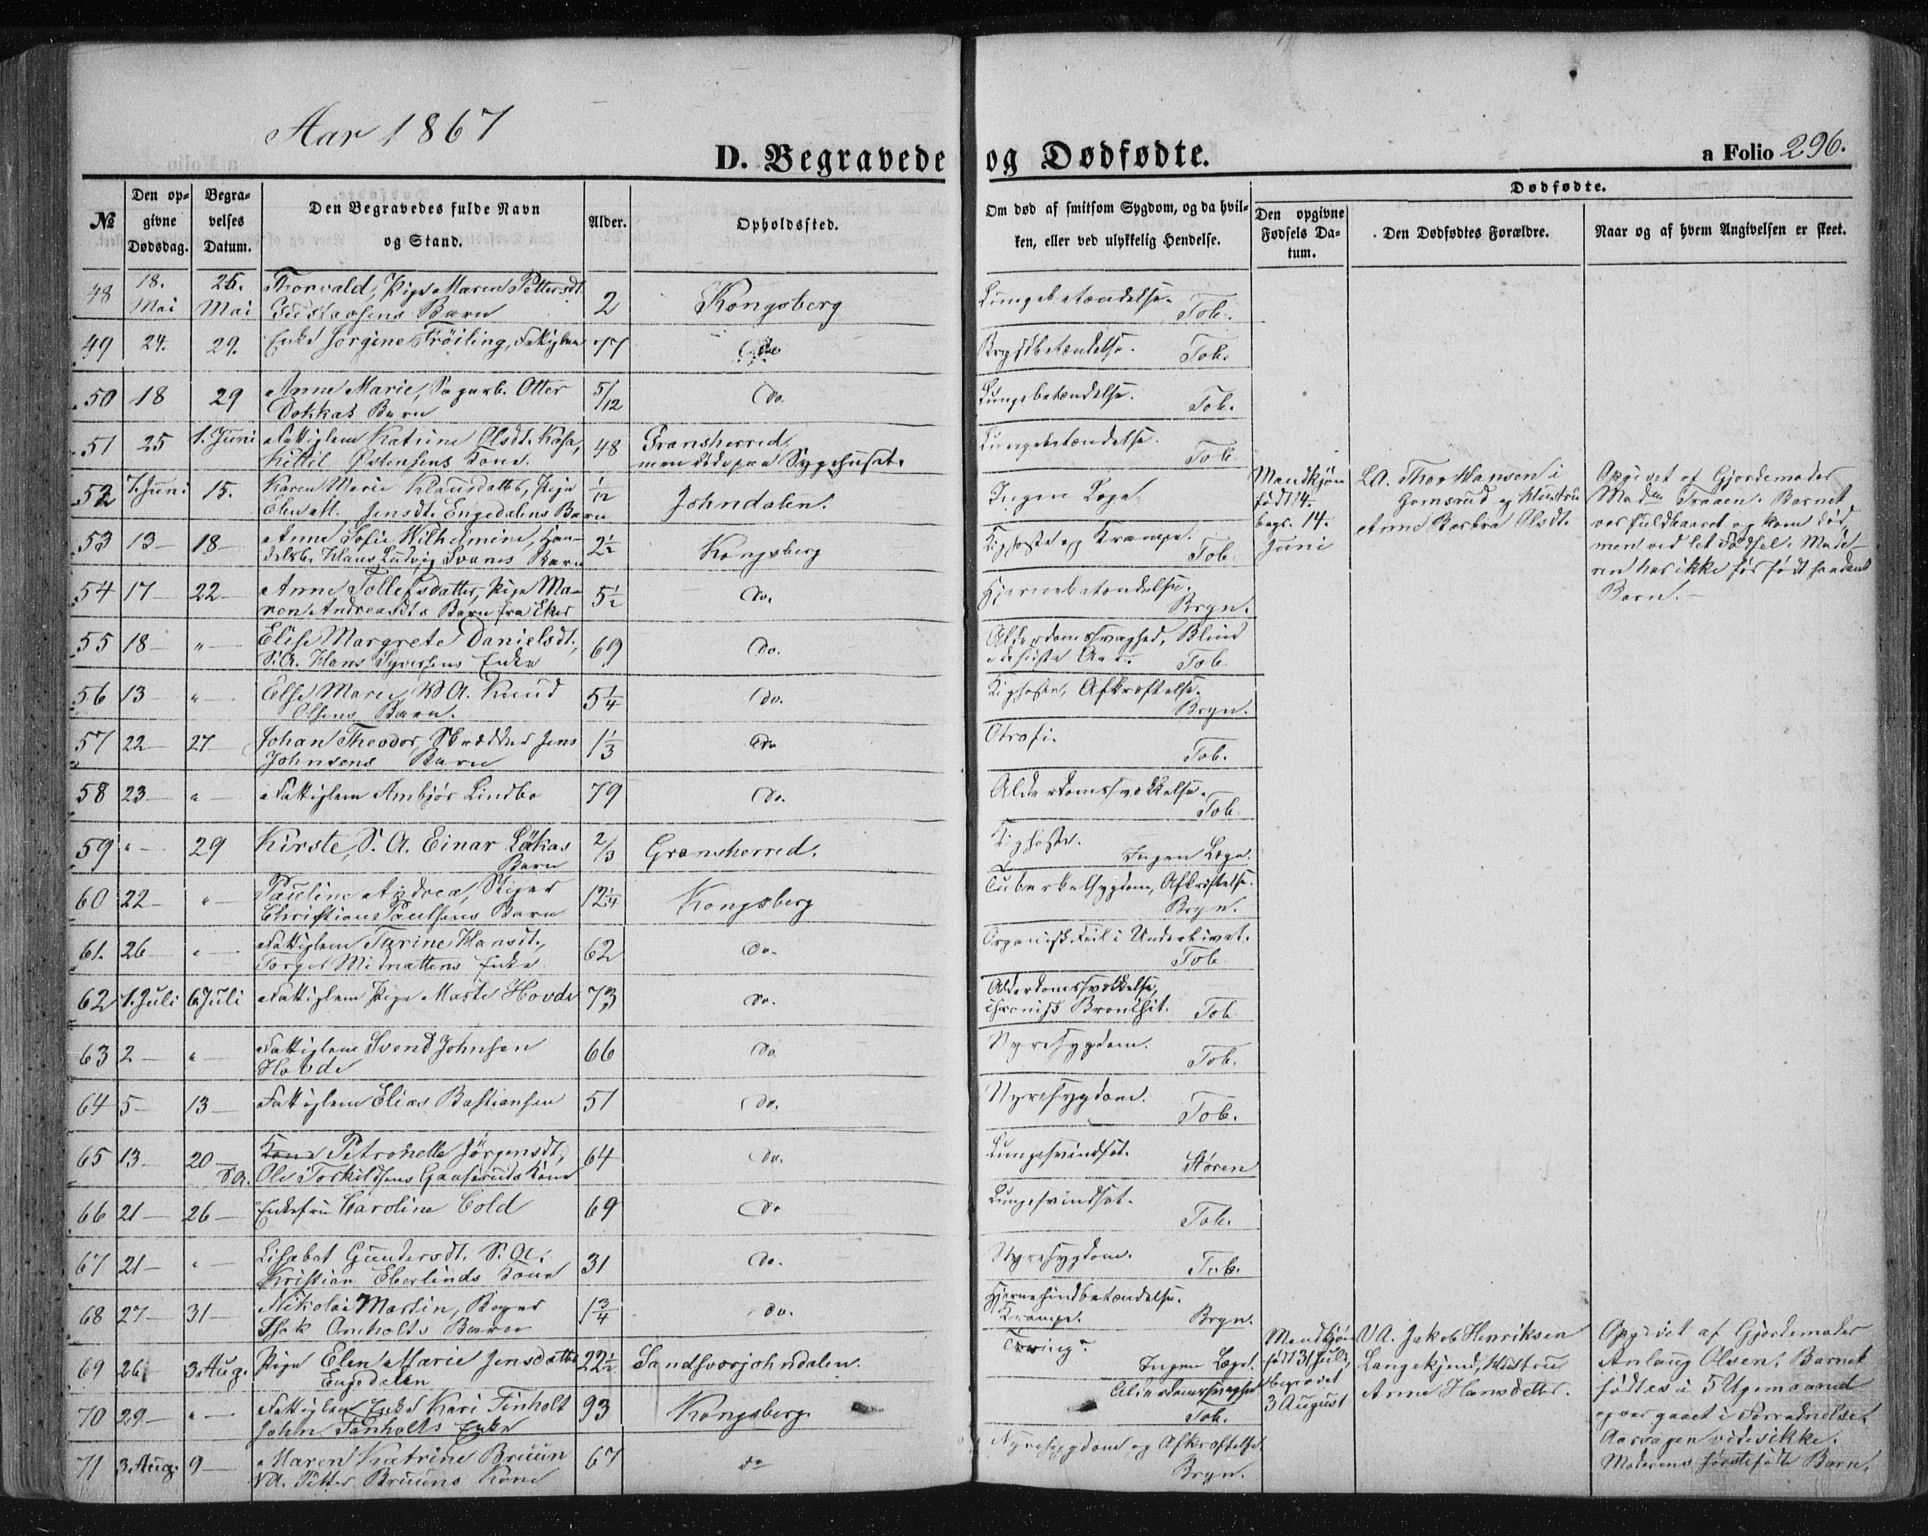 Aar 1867
D. Begravede og Dødfødte.
a Folio 296.
№
Den opgivne Dødsdag.
Begravelses Datum.
Den Begravedes fulde Navn og Stand.
Alder.
Opholdssted.
Om død af smitsom Sygdom, og da hvilken, eller ved ulykkelig Hendelse.
Dødfødte.
Den opgivne Fødsels Datum.
Den Dødfødtes Forældre.
Naar og af hvem Angivelsen er skeet.
48 18. Mai 25. Mai Thorvald, Pige Maren Pettersdt.
Gustavsens Barn 2 Kongsberg Lungebetændelse. Tob.
49 24. 29. Enke Jørgine Frøiling, Fattiglem 77 do Brystbetændelse. Tob.
50 18 29 Anne Marie, Sagarb. Otter
Dokkas Barn 5/12 do. Lungebetændelse. Tob.
51 25 1. Juni Fattiglem Katrine Olsdt. Kåsa,
Kittil Ostensens Kone. 48 Gransherred,
men døde paa Sygehuset. Lungebetændelse. Tob
52 7. Juni 15. Karen Marie Klausdatter, Pige
Elen M. Jensdt. Engedalens Barn 1/12 Johndalen. Ingen Læge.
53 13 18 Anne Sofie Wilhelmine, Han-
delsb. Klaus Ludvig Svanes Barn 2 1/2 Kongsberg Kighoste og Krampe. Tob.
54 17 22 Anne Tollefsdatter, Pige Ma-
ren Andreasdts Barn fra Eker 5 1/2 do. Hjernebetændelse. Bryn.
55 18 " Elise Margrete Danielsdt.,
S.A. Hans Syversens Enke 69 do. Alderdomssvaghed, Blind
sidste Aar. Tob.
56 13 " Else Marie, V.A. Knud
Olsens Barn. 5 1/4 do. Kighoste, Afkræftelse. Bryn.
57 22 27 Johan Theodor, Skrædder Jens
Johnsens Barn 1 1/3 do Atrofi. Tob.
58 23 " Fattiglem Ambjør Lindbo 79 do. Alderdomssvækkelse. Tob.
59 " 29 Kirste, S.A. Einar Låkas
Barn 2/3 Gransherred. Kighoste. Ingen Læge.
60 22 " Pauline Andrea, Stiger
Christian Paulsens Barn 12 1/4 Kongsberg Tuberkelsygdom, Afkræftelse. Bryn.
61. 26 " Fattiglem Tarine Hansdt.,
Torger Midnattens Enke 62 do. Organisk Feil i Underlivet. Tob.
62 1. Juli 6 Juli Fattiglem Pige Marte Hovde 73 do. Alderdomssvækkelse,
chronisk Bronchit. Tob.
63 2 " Fattiglem Svend Johnsen
Hovde 66 do Nyresygdom. Tob.
64 5 13 Fattiglem Elias Bastiansen 51 do. Nyresygdom. Tob.
65 13 20 Petronelle Jørgensdt,
S.A. Ole Torkildsens Gaaserud Kone 64 do. Lungesvindsot. Støren
66 21 26 Enkefru Caroline Cold 69 do Lungesvindsot. Tob.
67 21 " Lisabet Gundersdt. S.A.
Kristian Eberlinds Kone 31 do. Nyresygdom. Tob.
68 27 31 Nikolai Martin, Bager
Isak Omholts Barn 1 3/4 do. Hjernehindbetændelse.
Krampe. Bryn.
69 26 3. Aug. Pige Elen Marie Jensdatter
Engedalen 22 1/2 Sandsværjohndalen. Tæring. Ingen Læge.
70 29 " Fattiglem Enke Kari Tinholt
John Tinholts Enke 93 Kongsberg Alderdomssvaghed Tob.
71 3. Aug. 9 Maren Katrine Bruun
V.A. Petter Bruuns Kone 67 do Nyresygdom og Afkræftelse. Bryn.
Mandkjøn
født 14.
begr. 14.
Juni
L.A. Thor Hansen i
Gomsrud og Hustru
Anne Barbra Olsdt.
Opgivet af Gjordemoder
Maden Graven. Barnet
var fuldbaaret og kom død,
men ved let Fødsel. Mode-
ren har ikke før født saadant
Barn.
Mandkjøn
født 31 Juli,
begravet
3 August
V.A. Jakob Henriksen
Langekjend, Hustru
Anne Hansdatter.
Opgivet af Gjordemoder
Anlaug Olsen. Barnet
fødtes i 5 Ugemaaned
og var gaaet i Forraadnelse.
Aarsagen vides ikke.
Moderens førstefødte Barn.